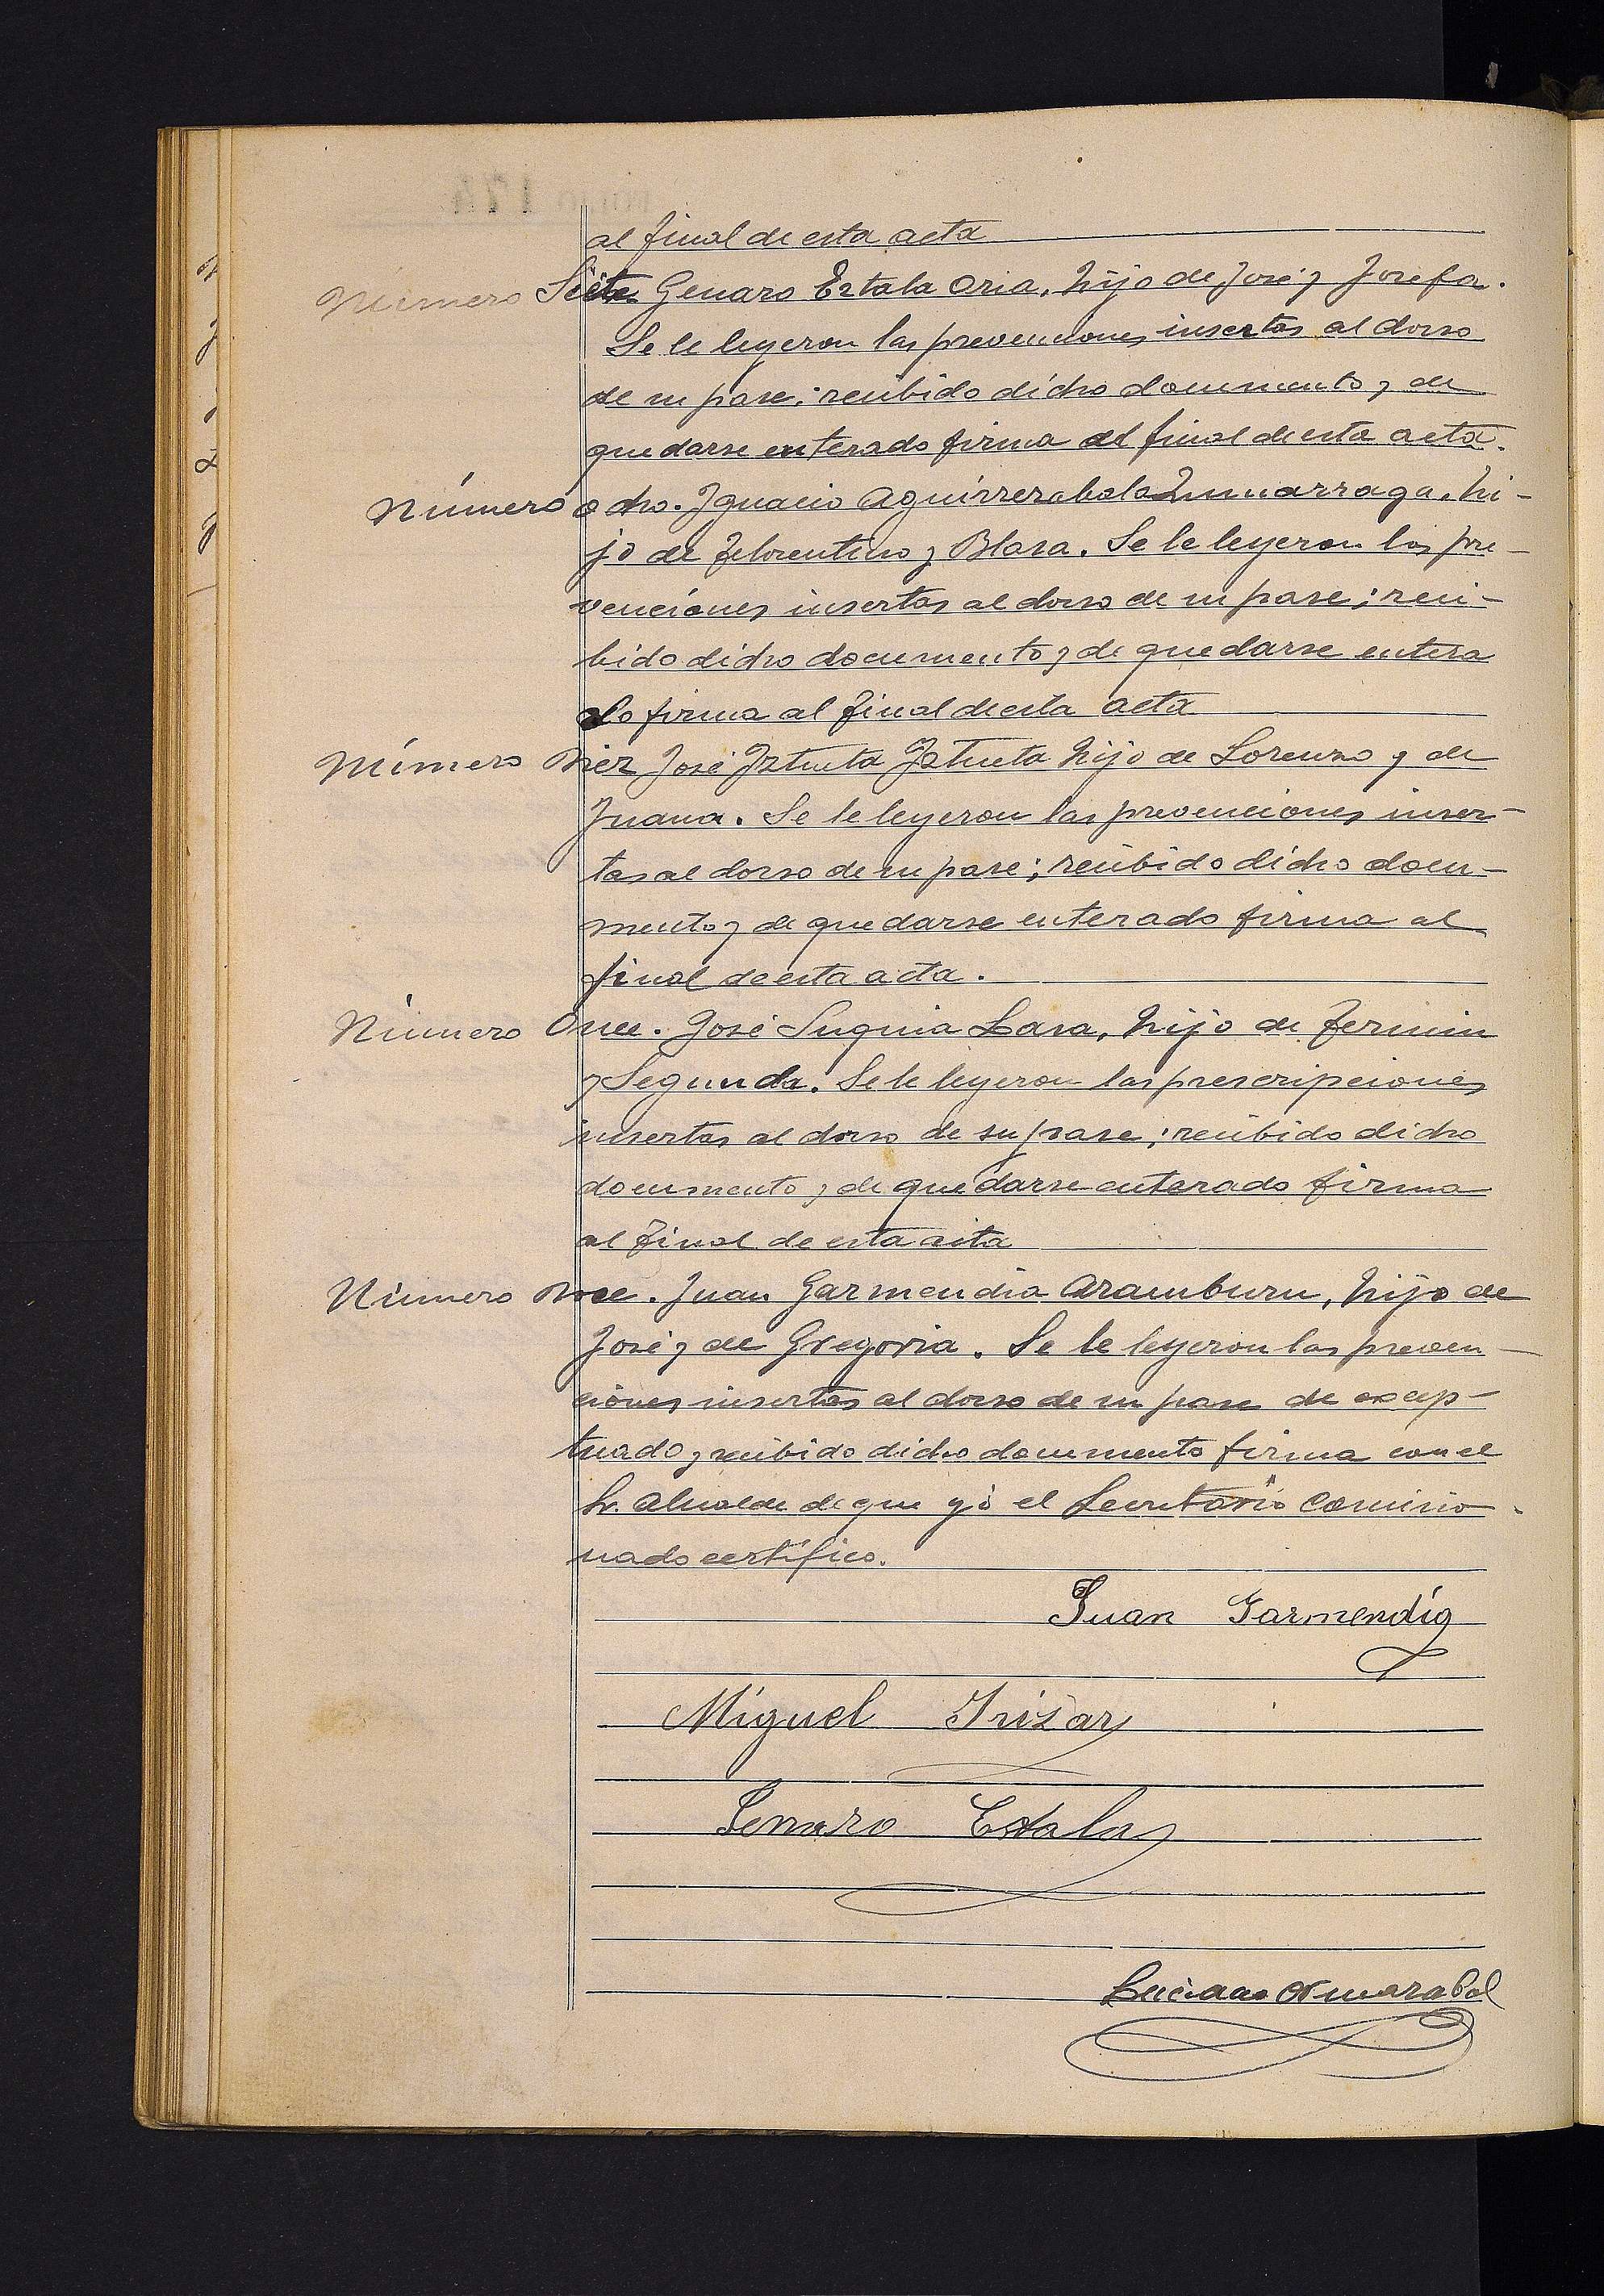 al final de esta acta
Número Siete Genaro Eztala Oria, hijo de José y Josefa.
Se le leyeron las prevenciones insertas al dorso
de su pase; recibido dicho documento y de
quedarse enterado firma al final de esta acta.
Número ocho. Ignacio Aguirrezabala Zumarraga, hi-
jo de Florentino y Blasa. Se le leyeron las pre-
venciones insertas al dorso de su pase; reci-
bido dicho documento y de quedarse entera
do firma al final de esta acta
Número Diez José Iztueta Iztueta hijo de Lorenzo y de
Juana. Se le leyeron las prevenciones inser-
tas al dorso de su pase; recibido dicho docu-
mento y de quedarse enterado firma al
final de esta acta.
Número Once. José Suquia Lasa, hijo de Fermin
y Segunda. Se le leyeron las prescripciones
insertas al dorso de su pase; recibido dicho
documento y de quedarse enterado firma
al final de esta acta
Número Doce. Juan Garmendia Aramburu, hijo de
José y de Gregoria. Se le leyeron las preven-
ciones insertas al dorso de su pase de excep-
tuado y recibido dicho documento firma con el
Sr. Alcalde de que yó el Secretario Comisio-
nado certifico.
Juan Garmendia
Miguel Irizar
Genaro Estala
Luciano